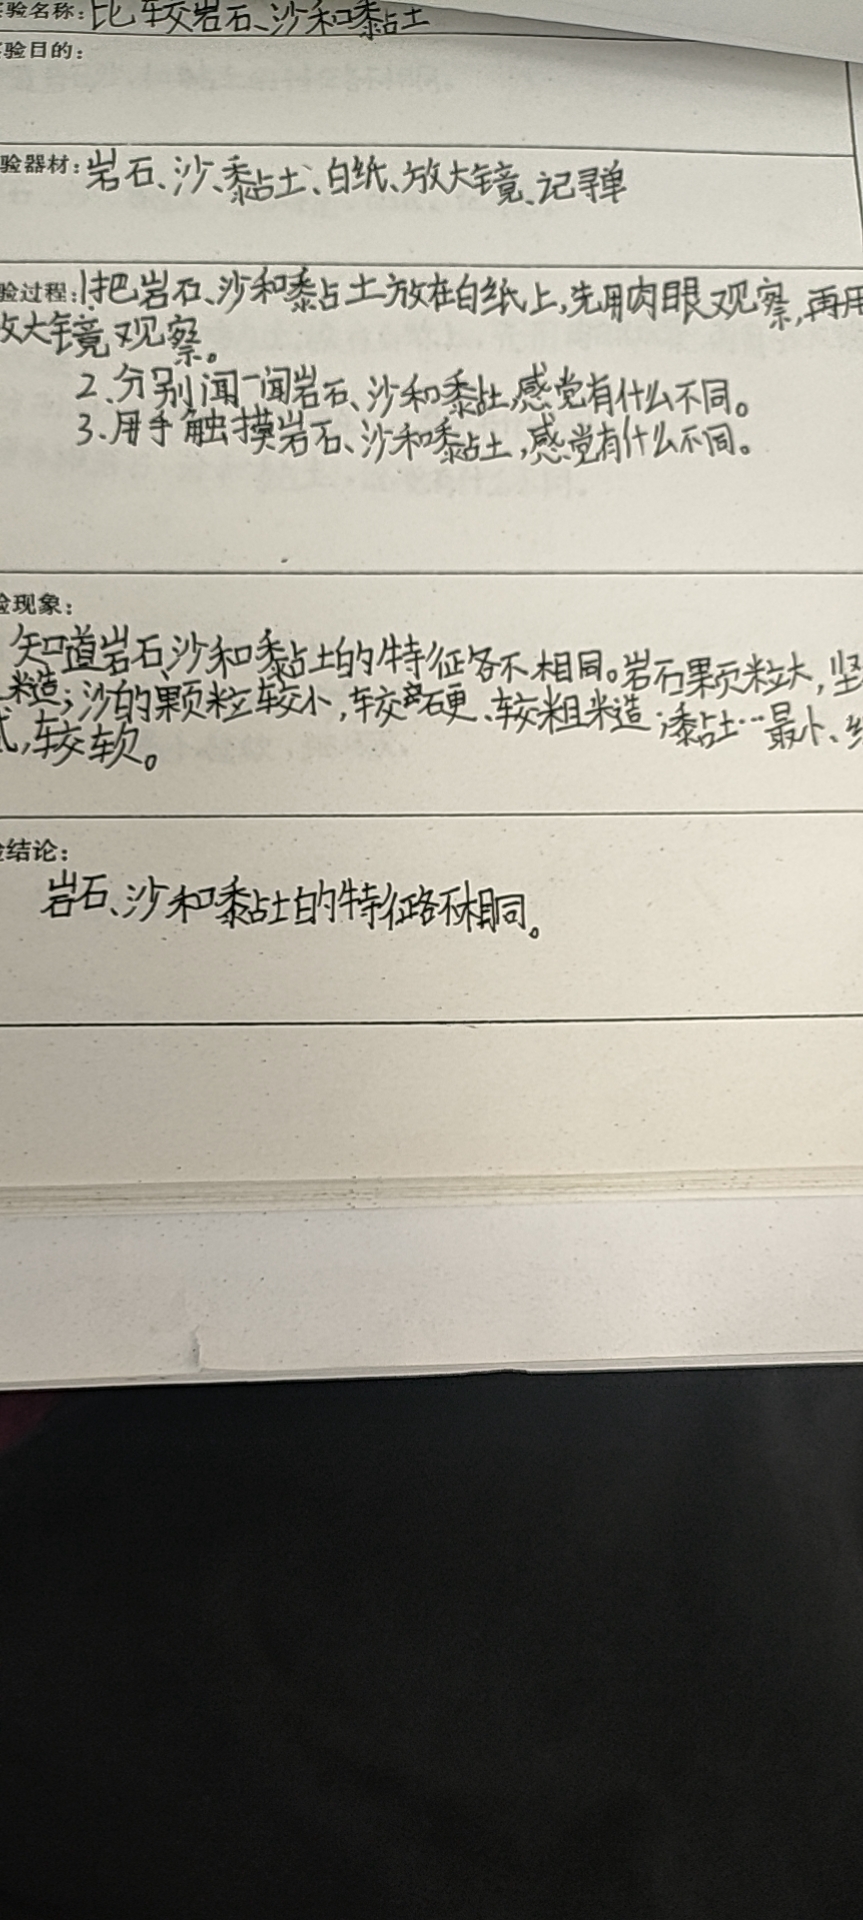 验名称:比较岩石、沙和黏土
验目的:
验器材:岩石、沙、黏土、白纸、放大镜、记录单
验过程:1把岩石、沙和黏土放在白纸上,先用肉眼观察,再用
放大镜观察。
2、分别闻一闻岩石、沙和黏土,感觉有什么不同。
3、用手触摸岩石、沙和黏土,感觉有什么不同。
验现象:
知道岩石、沙和黏土的特征各不相同。岩石颗粒大,坚
糙;沙的颗粒较小,较硬、较粗糙;黏土…最小、
,较软。
结论:
岩石、沙和黏土的特征各不相同。